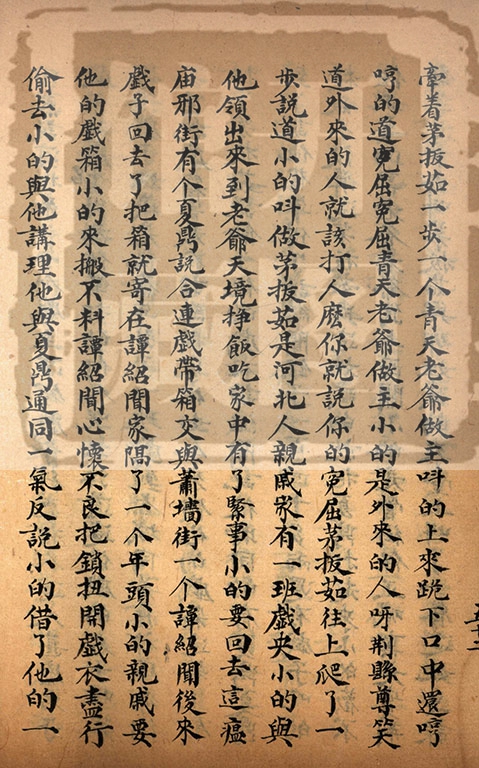 牽着茅拔茹一步一个青天老爺做主呌的上來跪下口中還哼
哼的道寃屈寃屈青天老爺做主小的是外來的人呀荆縣尊笑
道外來的人就該打人麽你就說你的寃屈茅拔茹往上爬了一
步說道小的呌做茅拔茹是河北人親戚家有一班戲央小的與
他領出來到老爺天境掙飯吃家中有了緊事小的要回去這瘟
庙邪街有个夏鼎說合連戲帶箱交與蕭墻街一个譚紹聞後來
戲子回去了把箱就寄在譚紹聞家隔了一个年頭小的親戚要
他的戲箱小的來搬不料譚紹聞心懷不良把鎖扭開戲衣盡行
偷去小的與他講理他與夏鼎通同一氣反說小的借了他的一